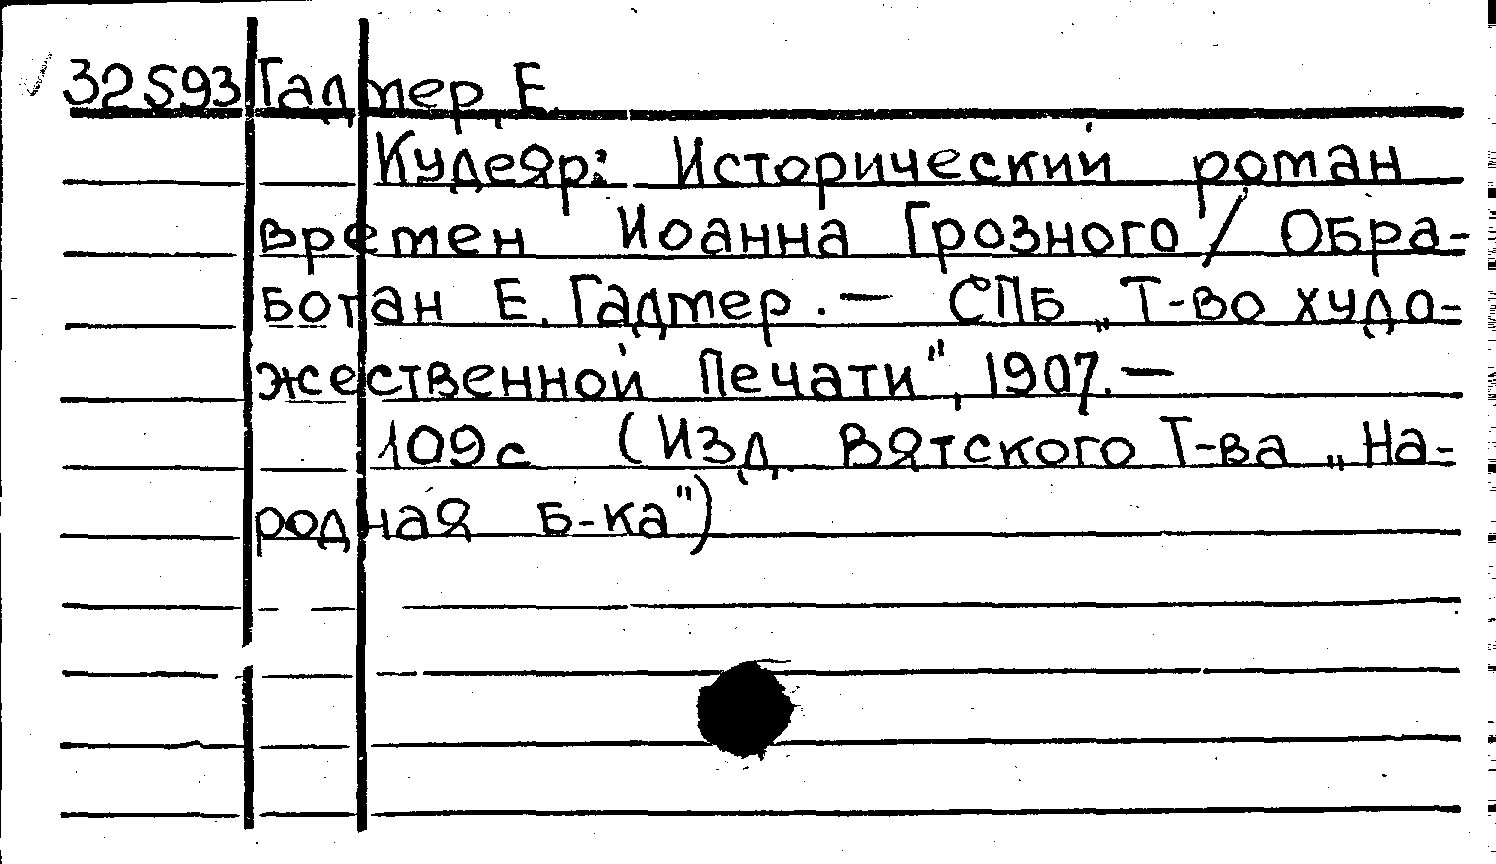 32593 Гадмер, Е.
Кудеяр: Исторический роман
времен Иоанна Грозного / Обра-
ботан Е. Гадмер. — СПБ „Т-во худо-
жественной печати", 1907. —
109 с (Изд. Вятского Т-ва „На-
родная б-ка")